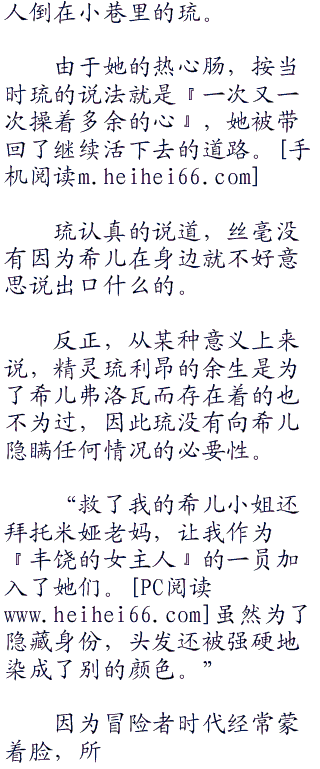 人倒在小巷里的琉。
由于她的热心肠，按当
时琉的说法就是『一次又一
次操着多余的心』，她被带
回了继续活下去的道路。[手
机阅读m.heihei66.com]
琉认真的说道，丝毫没
有因为希儿在身边就不好意
思说出口什么的。
反正，从某种意义上来
说，精灵琉利昂的余生是为
了希儿弗洛瓦而存在着的也
不为过，因此琉没有向希儿
隐瞒任何情况的必要性。
“救了我的希儿小姐还
拜托米娅老妈，让我作为
『丰饶的女主人』的一员加
入了她们。[PC阅读
www.heihei66.com]虽然为了
隐藏身份，头发还被强硬地
染成了别的颜色。”
因为冒险者时代经常蒙
着脸，所